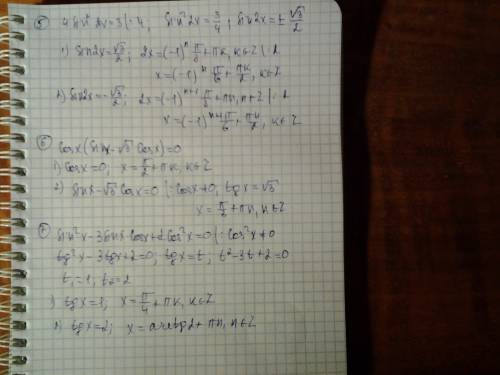 5) 4 sin² 2x = 3 |: 4, sin² 2x = 3/4, sin 2x = ± √3/2
1) sin 2x = √3/2; 2x = (-1)ⁿ π/3 + πk, k∈Z |: 2
x = (-1)ⁿ π/6 + πk/2, k∈Z
2) sin 2x = -√3/2; 2x = (-1)ⁿ⁺¹ π/3 + πn, n∈Z |: 2
x = (-1)ⁿ⁺¹ π/6 + πn/2, n∈Z
6) cos x (sin x - √3 cos x) = 0
1) cos x = 0, x = π/2 + πk, k∈Z
2) sin x - √3 cos x = 0 |: cos x ≠ 0, tg x = √3
x = π/3 + πn, n∈Z
7) sin² x - 3 sin x cos x + 2 cos² x = 0 |: cos² x ≠ 0
tg² x - 3 tg x + 2 = 0; tg x = t, t² - 3t + 2 = 0
t₁ = 1, t₂ = 2
1) tg x = 1, x = π/4 + πk, k∈Z
2) tg x = 2; x = arctg 2 + πn, n∈Z